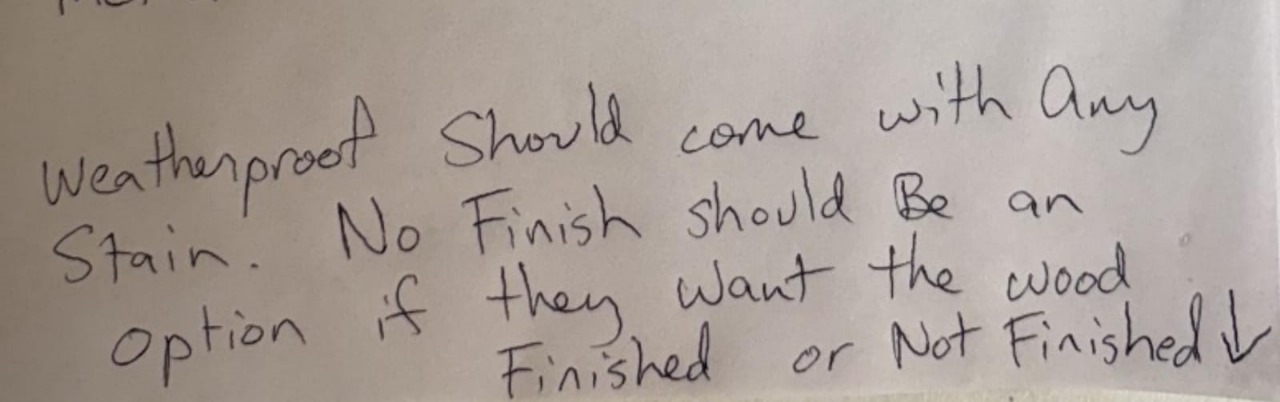 Weatherproof Should come with Any
Stain. No Finish should Be an
option if they want the wood
Finished or Not Finished ↓